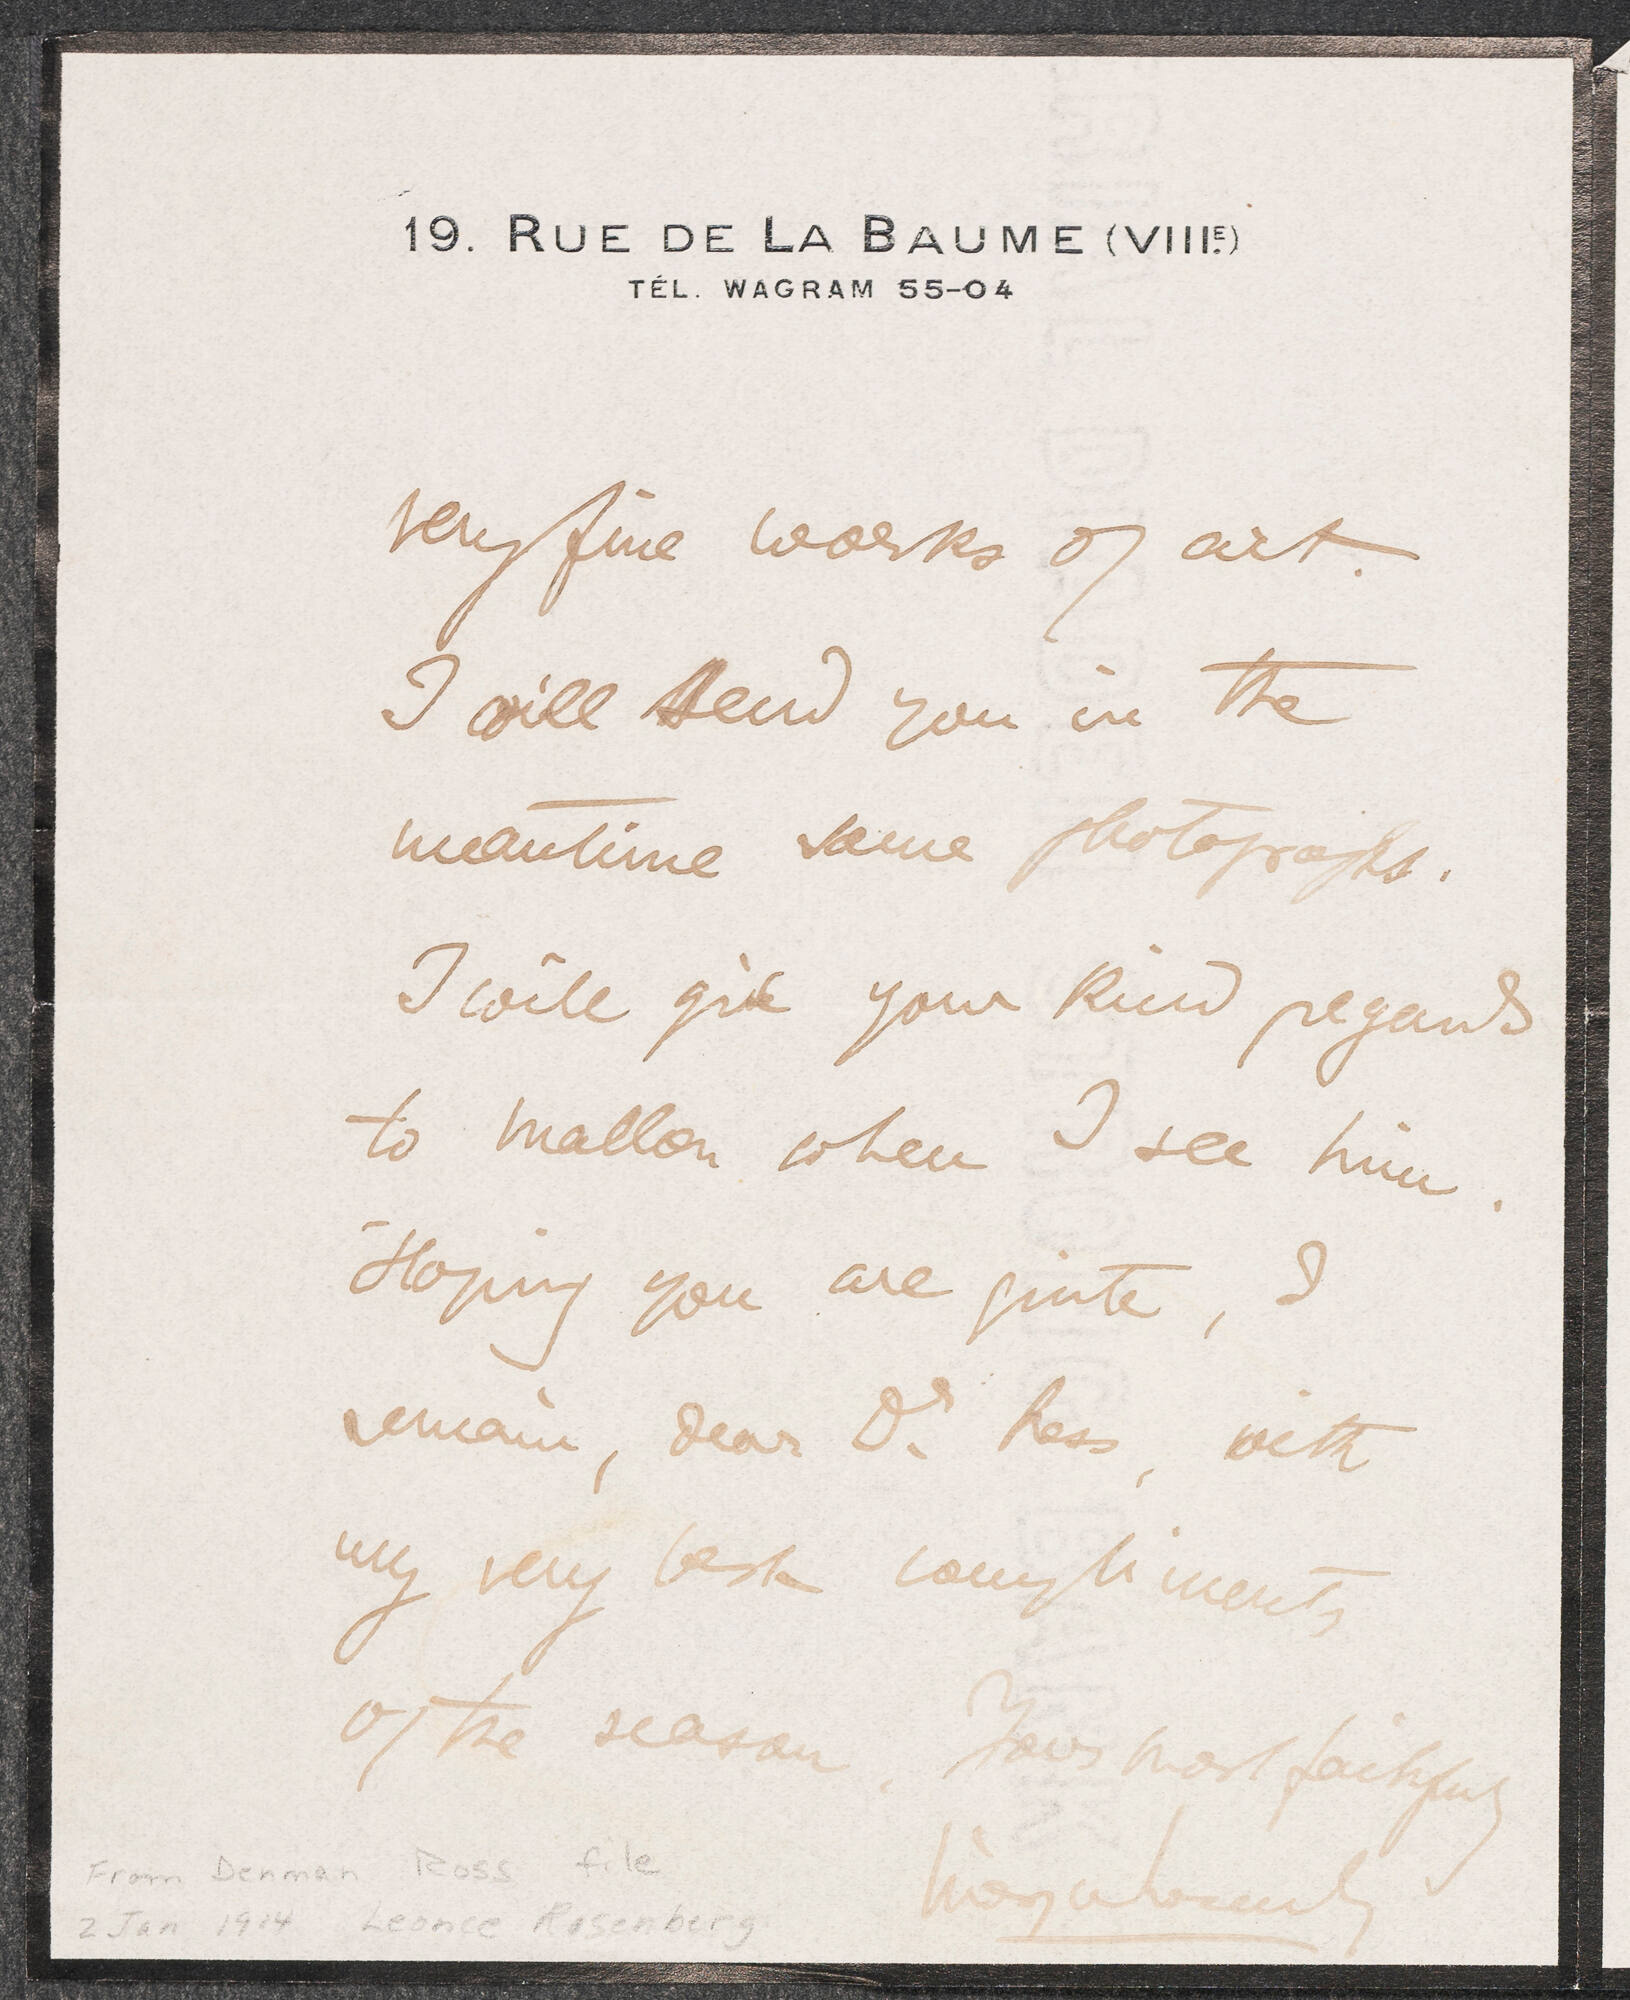 19. RUE DE LA BAUME (VIIIE.)
TÉL. WAGRAM 55-04
very fine works of art.
I will send you in the
meantime some photographs.
I will give your kind regards
to Mallon when I see him.
Hoping you are quite, I
remain, dear Dr. Ross, with
my very best compliments
of the season. Yours most faithfully
From Denman Ross file
2 Jan 1914 Leonce Rosenberg